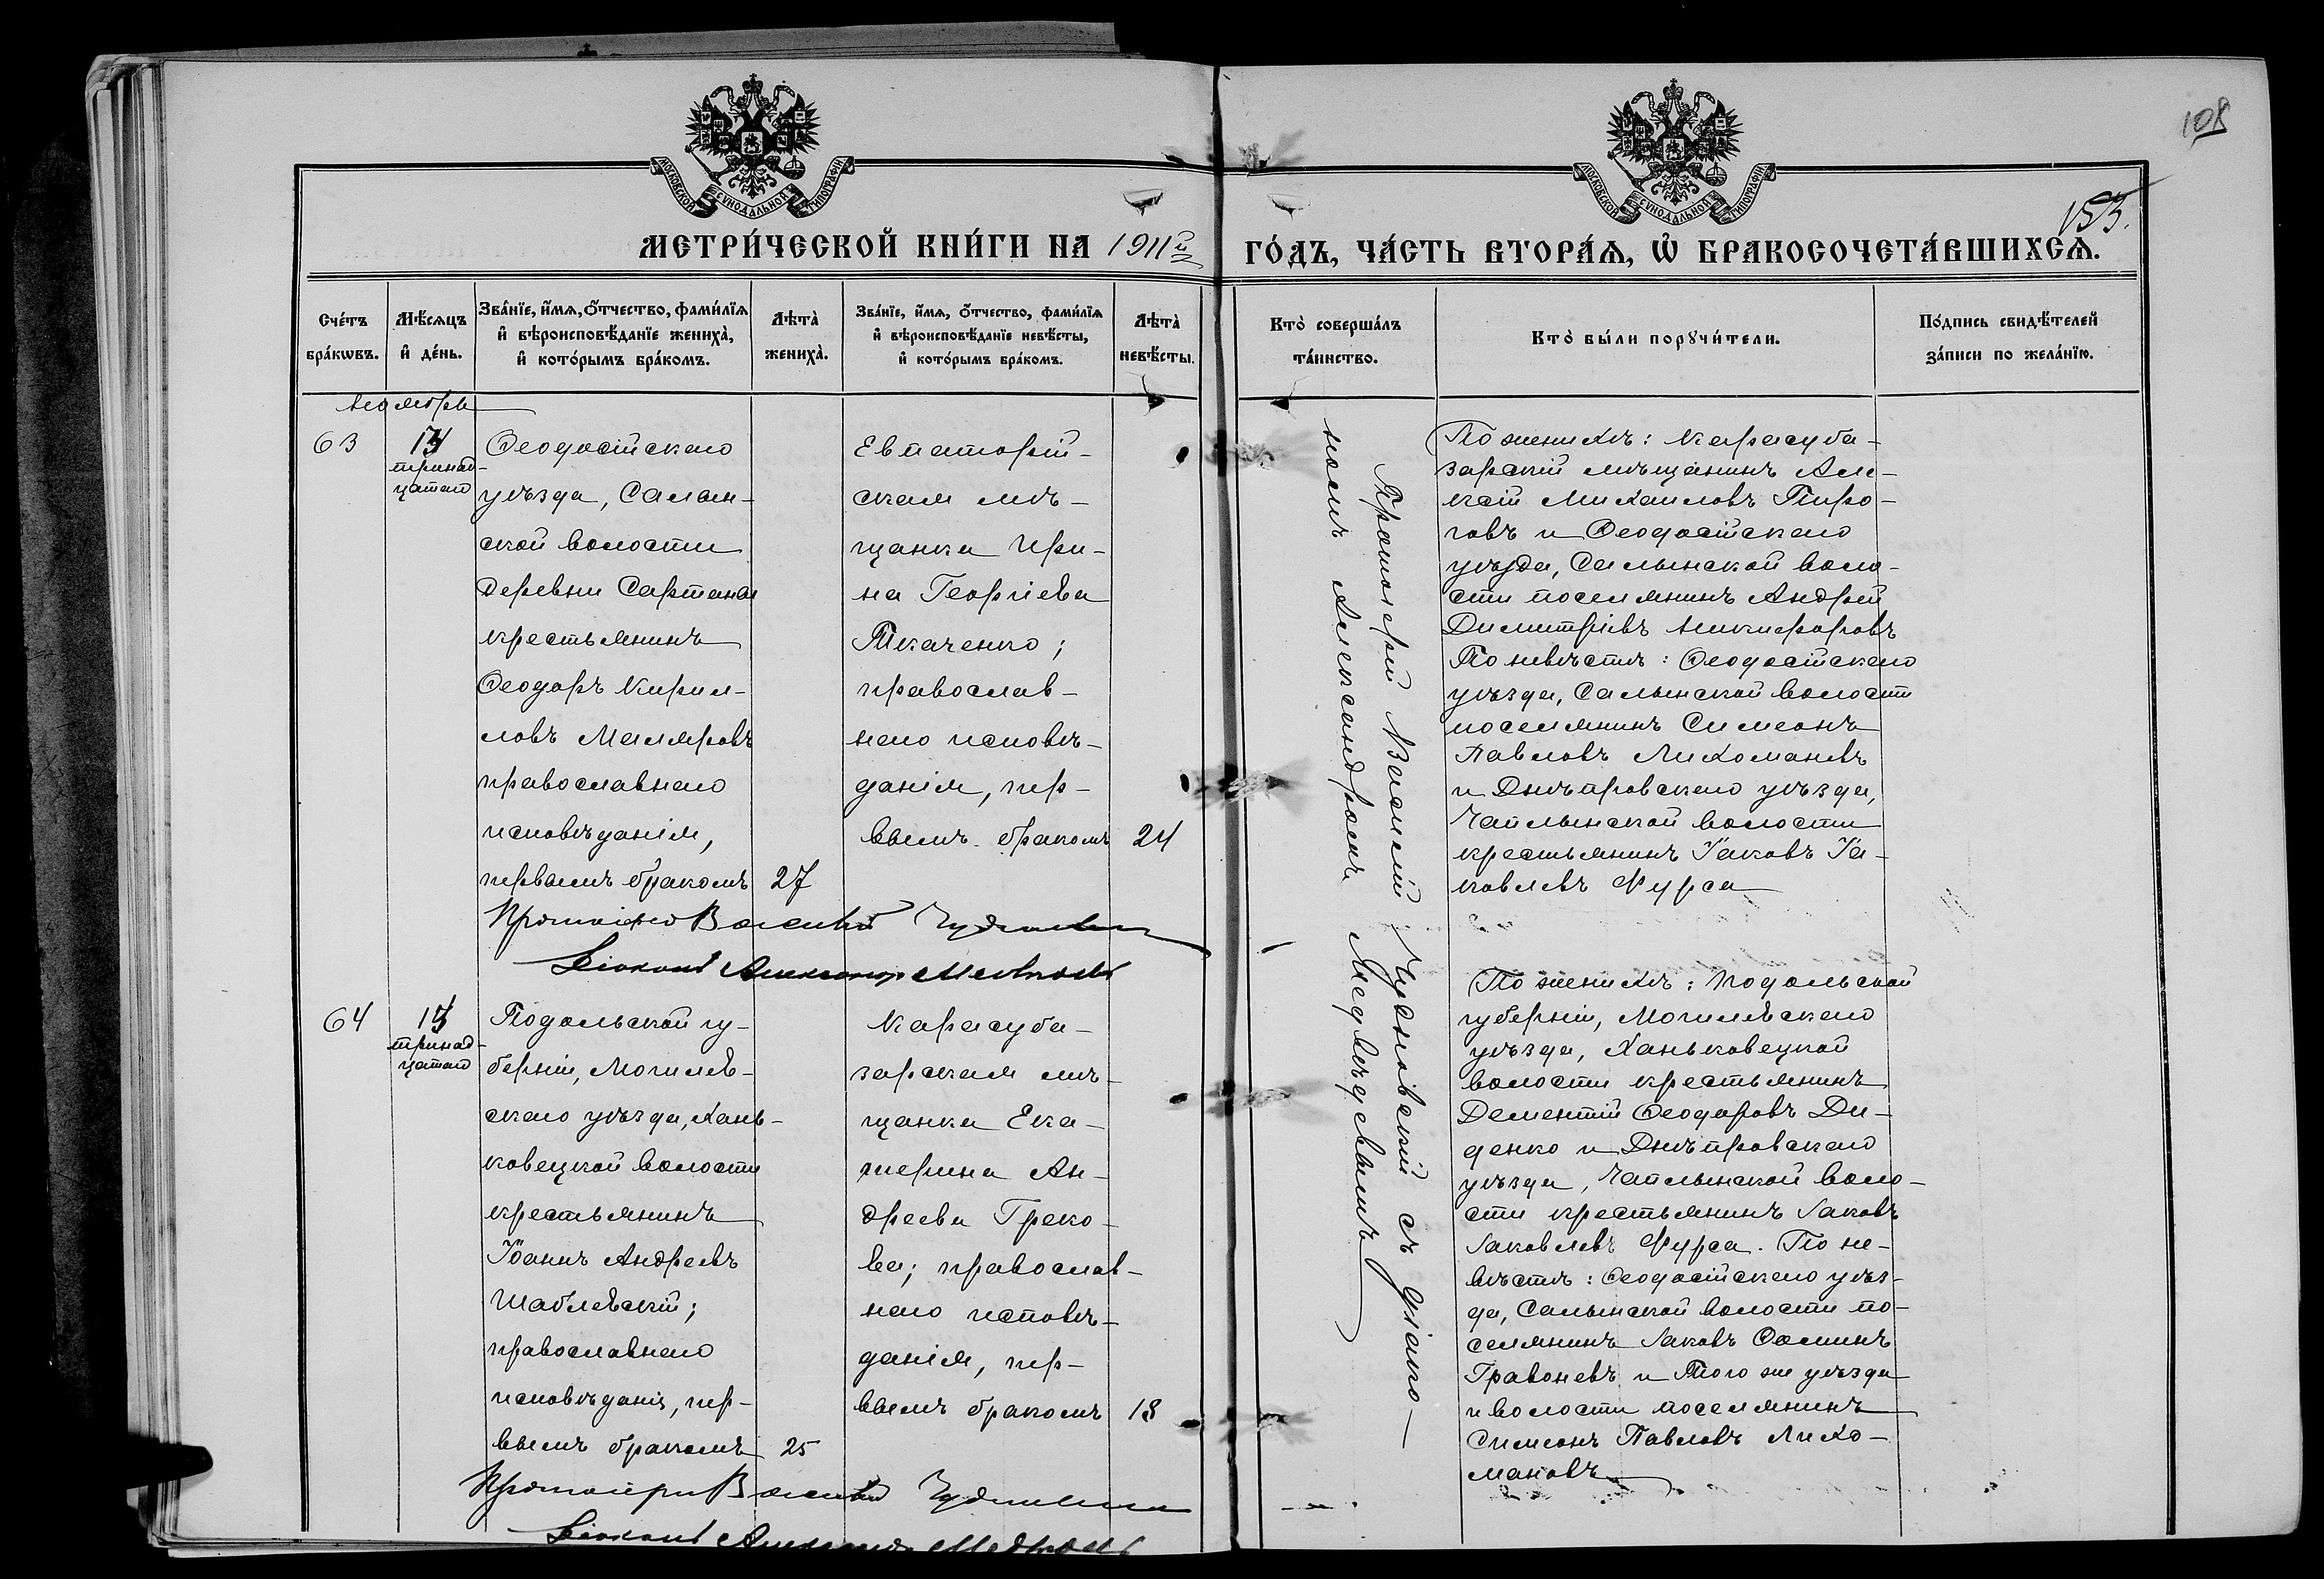 108
153.
МОСКОВСКОЙ СУНОДАЛЬНОЙ ТИПОГРАФІИ
МОСКОВСКОЙ СУНОДАЛЬНОЙ ТИПОГРАФІИ
МЕТРИ́ЧЕСКОЙ КНИ́ГИ НА 1911й ГО́ДЪ, ЧА́СТЬ ВТОРА́Я, Ѡ҆ БРАКОСОЧЕТА́ВШИХСЯ.
Сче́тъ бра́кѡвъ.
Мѣ́сяцъ и҆ де́нь.
Зва́нїе, и҆́мя, ѻ҆́тчество, фами́лїя и҆ вѣроисповѣ́данїе жениха̀, и҆ кото́рымъ бра́комъ.
Лѣта̀ жениха̀.
Зва́нїе, и҆́мя, ѻ҆́тчество, фами́лїя и҆ вѣроисповѣ́данїе невѣ́сты, и҆ кото́рымъ бра́комъ.
Лѣта̀ невѣ́сты.
Кто̀ соверша́лъ та́инство.
Кто̀ бы́ли порꙋчи́тели.
По́дпись свидѣ́телей за́писи по жела́нію.
Ноября
63
13
тринад-
цатаго
Ѳеодосійскаго
уѣзда, Салын-
ской волости
деревни Сартана
крестьянинъ
Ѳеодоръ Кирил-
ловъ Маляровъ
православнаго
исповѣданія,
первымъ бракомъ
27
Евпаторій-
ская мѣ-
щанка Ири-
на Георгіева
Ткаченко;
православ-
наго исповѣ-
данія, пер-
вымъ бракомъ
24
Протоіерей Василій Чудновскій
Діаконъ Александр Медвѣдевъ
Протоіерей Василій Чудновскій съ діако-
номъ Александромъ Медвѣдевымъ
По женихѣ: Карасуба-
зарскій мѣщанинъ Але-
ксій Михаиловъ Пиро-
говъ и Ѳеодосійскаго
уѣзда, Салынской воло-
сти поселянинъ Андрей
Димитріевъ Никифоровъ
По невѣстѣ: Ѳеодосійскаго
уѣзда, Салынской волости
поселянинъ Симеонъ
Павловъ Лихомановъ
и Днѣпровскаго уѣзда,
Чаплынской волости
крестьянинъ Іаковъ Іа-
ковлевъ Фурса
64
13
тринад-
цатаго
Подольской гу-
берніи, Могилев-
скаго уѣзда, Хань-
ковецкой волости
крестьянинъ
Іоаннъ Андреевъ
Шаблевскій;
православнаго
исповѣданія, пер-
вымъ бракомъ
25
Карасуба-
зарская мѣ-
щанка Ека-
терина Ан-
дреева Греко-
ва; православ-
наго исповѣ-
данія, пер-
вымъ бракомъ
18
Протоіерей Василій Чудновскій
Діаконъ Александр Медвѣдевъ
По женихѣ: Подольской
губерніи, Могилевскаго
уѣзда, Ханьковецкой
волости крестьянинъ
Дементій Ѳеодоровъ Ди-
денко и Днѣпровскаго
уѣзда, Чаплынской воло-
сти крестьянинъ Іаковъ
Іаковлевъ Фурса. По не-
вѣстѣ: Ѳеодосійскаго уѣз-
да, Салынской волости по-
селянинъ Іаковъ Ѳоминъ
Гравоневъ и того же уѣзда
и волости поселянинъ
Симеонъ Павловъ Лихо-
мановъ